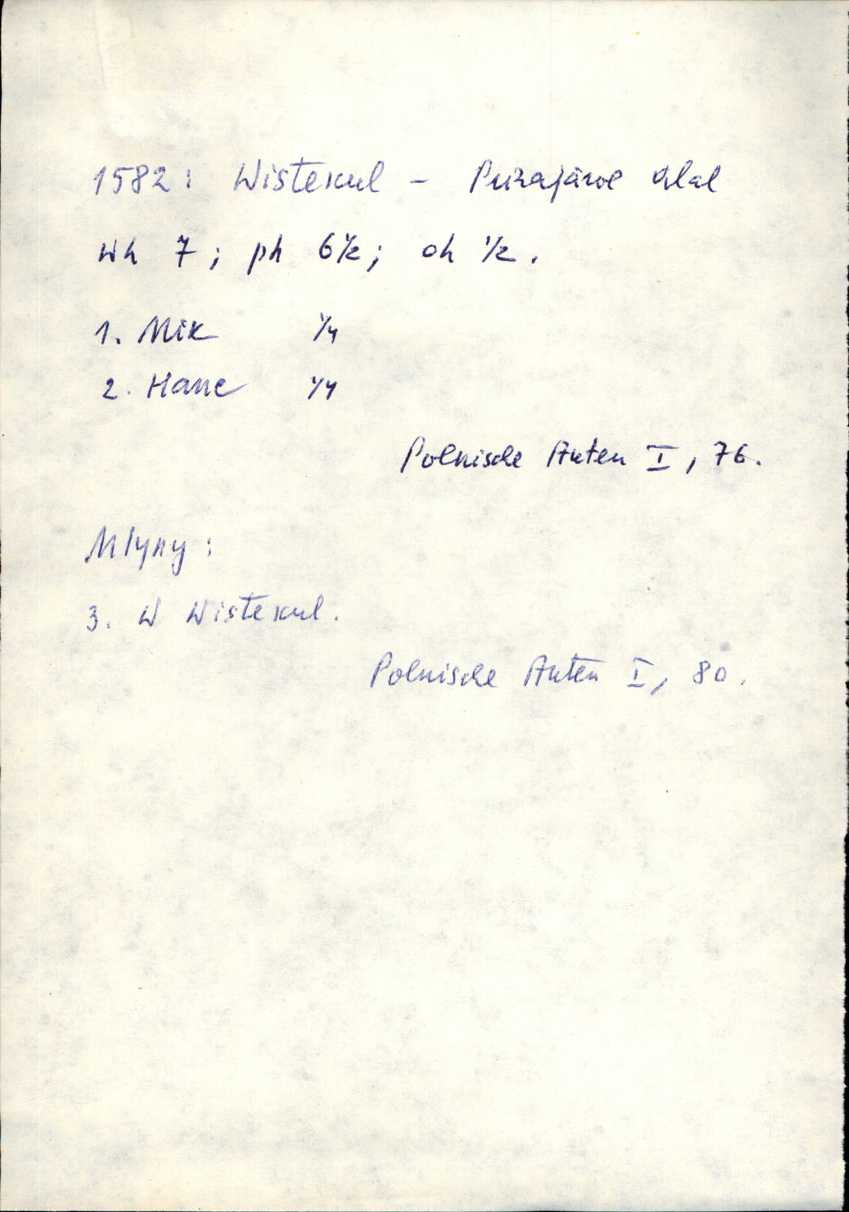 1582: Wistekul - Puhajärve alal
Wh 7; ph 6 1/2; oh 1/2.
1. Mik 1/4
2. Hane 1/4
Polnische Akten I, 76.
Młyny:
3. W Wistekul.
Polnische Akten I, 80.